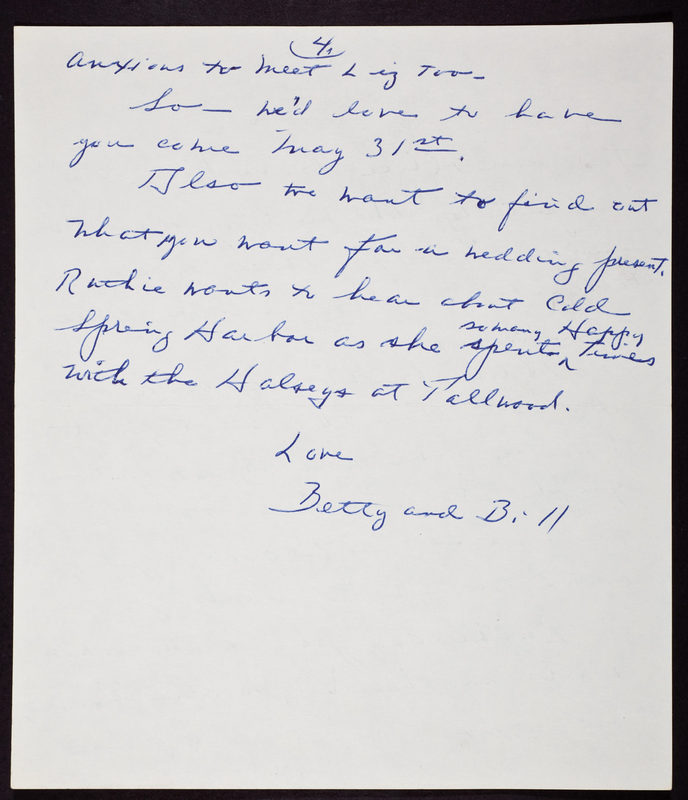 4.
anxious to meet Liz too -
So - we'd love to have
you come May 31st.
Also we want to find out
what you want for a wedding present.
Ruthie wants to hear about Cold
Spring Harbor as she spent so many Happy Times
with the Halseys at Tallwood.
Love
Betty and Bill